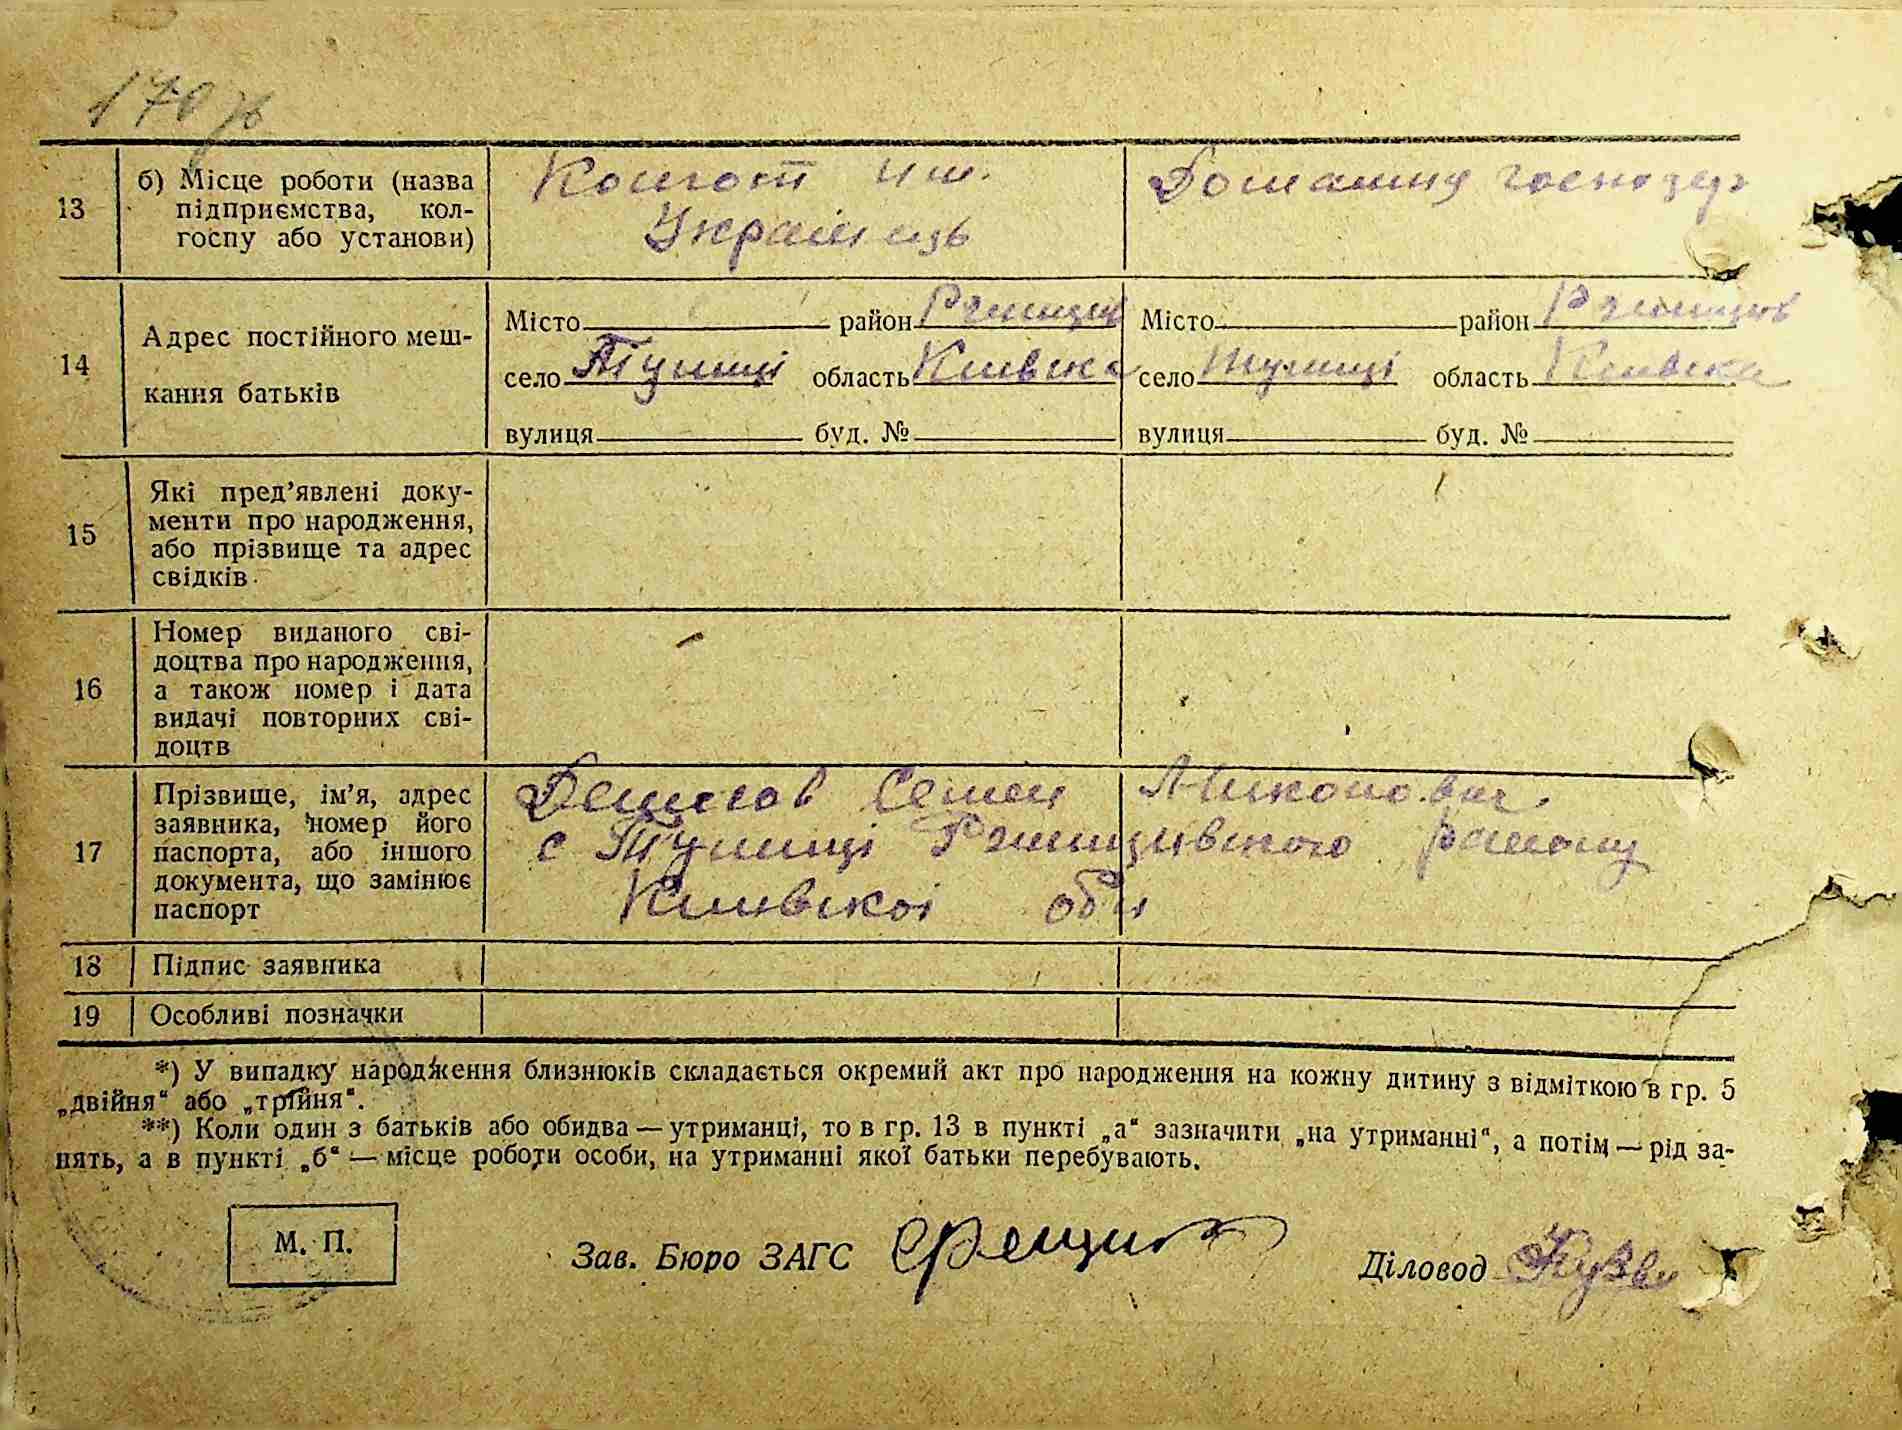 170 зв
13
б) Місце роботи (назва
підприємства, кол-
госпу або установи)
Українець
Домашня господар
14
Адрес постійного меш-
кання батьків
Місто район Ржищів
село Тулинці область Київська
вулиця буд. №
Місто район Ржищів
село Тулинці область Київська
вулиця буд. №
15
Які пред’явлені доку-
менти про народження,
або прізвище та адрес
свідків
16
Номер виданого сві-
доцтва про народження,
а також номер і дата
видачі повторних сві-
доцтв
17
Прізвище, ім’я, адрес
заявника, номер його
паспорта, або іншого
документа, що замінює
паспорт
Денисов Семен Миколович
с Тулинці Ржищівського району
Київської обл
18
Підпис заявника
19
Особливі позначки
*) У випадку народження близнюків складається окремий акт про народження на кожну дитину з відміткою в гр. 5
„двійня“ або „трійня“.
**) Коли один з батьків або обидва — утриманці, то в гр. 13 в пункті „а“ зазначити „на утриманні“, а потім — рід за-
нять, а в пункті „б“ — місце роботи особи, на утриманні якої батьки перебувають.
М. П.
Зав. Бюро ЗАГС
Діловод